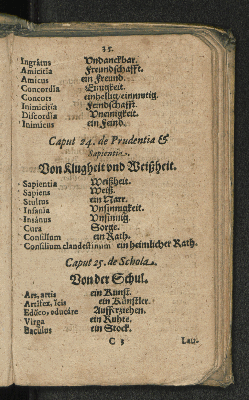 35.
Ingrātus Vndanckbar.
Amicitia Freundschafft.
Amicus ein Freund.
Concordia Einigkeit.
Concors einhellig/einmütig.
Inimicitia Feindschafft.
Discordia Vneinigkeit.
Inimicus ein Feind.
Caput 24. de Prudentia &
Sapientia.
Von Klugheit vnd Weißheit.
Sapientia Weißheit.
Sapiens Weiß.
Stultus ein Narr.
Insania Vnsinnigkeit.
Insānus Vnsinnig.
Cura Sorge.
Consilium ein Rath.
Consilium clandestinum ein heimlicher Rath.
Caput 25. de Schola.
Von der Schul.
Ars, artis ein Kunst.
Artifex, icis ein Künstler.
Edŭco, educāre Aufferziehen.
Virga ein Ruhte.
Baculus ein Stock.
C 3 Lau-